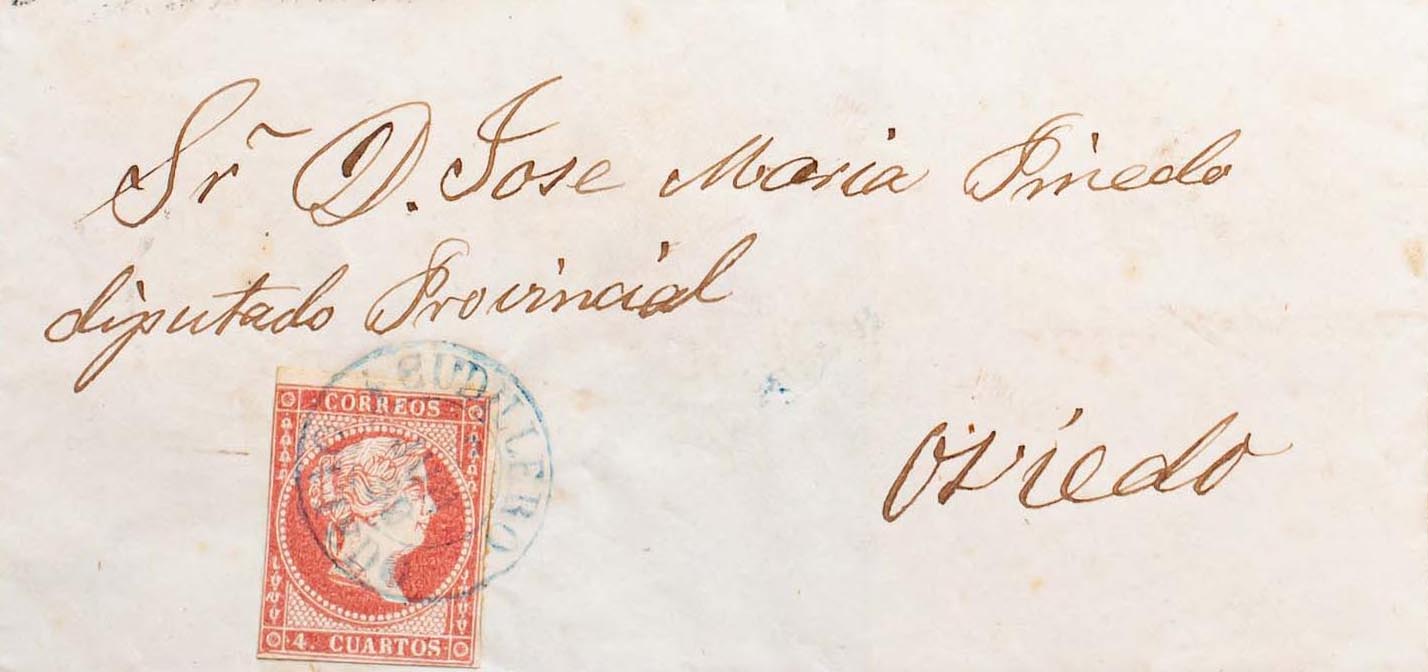 Sr D. Jose Maria Pinedo
diputado Provincial
Oviedo
CORREOS
4. CUARTOS